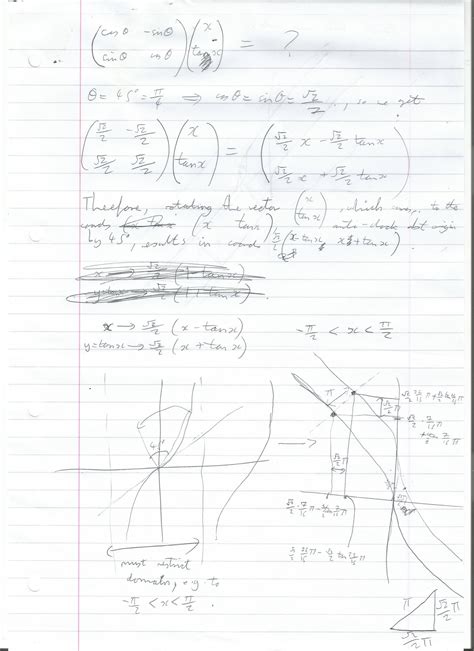 (cosθ -sinθ
sinθ cosθ) (x
tanx) = ?
θ = 45° = π/4 ⟹ cosθ = sinθ = √2/2, so we get
(√2/2 -√2/2
√2/2 √2/2) (x
tanx) = (√2/2 x - √2/2 tanx
√2/2 x + √2/2 tanx)
Therefore, rotating the vector (x
tanx) which to the
coords (x tanx) anti-clock abt origin
by 45°, results in coord √2/2 (x-tanx x+tanx)
x → √2/2 (1-tanx)
y=tanx → √2/2 (1+tanx).
x → √2/2 (x-tanx)
y=tanx → √2/2 (x+tanx)
-π/2 < x < π/2
45°
must restrict
domain, e.g. to
-π/2 < x < π/2.
π
√2/2 π
π
√2/2 π
√2/2 π